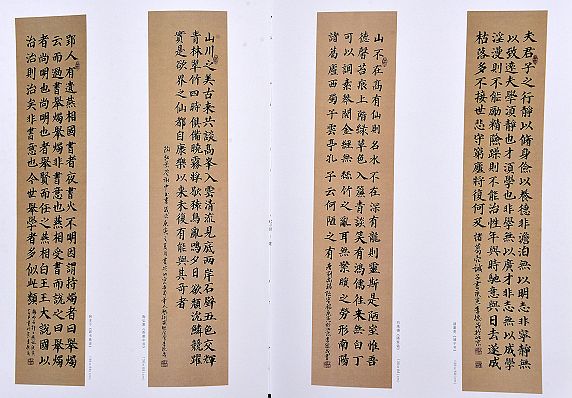 夫君子之行靜以脩身儉以養德非澹泊無以明志非寧靜無
以致遠夫學須靜也才須學也非學無以廣才非志無以成學
淫漫則不能勵精險躁則不能治性年與時馳意與日去遂成
枯落多不接世悲守窮廬將復何及 諸葛亮誡子書
山不在高有仙則名水不在深有龍則靈斯是陋室惟吾
德馨苔痕上階綠草色入簾青談笑有鴻儒往來無白丁
可以調素琴閱金經無絲竹之亂耳無案牘之勞形南陽
諸葛廬西蜀子雲亭孔子云何陋之有
山川之美古來共談高峯入雲清流見底兩岸石壁五色交輝
青林翠竹四時俱備曉霧將歇猿鳥亂鳴夕日欲頹沈鱗競躍
實是欲界之仙都自康樂以來未復有能與其奇者
郢人有遺燕相國書者夜書火不明因謂持燭者曰舉燭
云而過書舉燭舉燭非書意也燕相受書而說之曰舉燭
者尚明也尚明也者舉賢而任之燕相白王王大說國以
治治則治矣非書意也今世舉學者多似此類